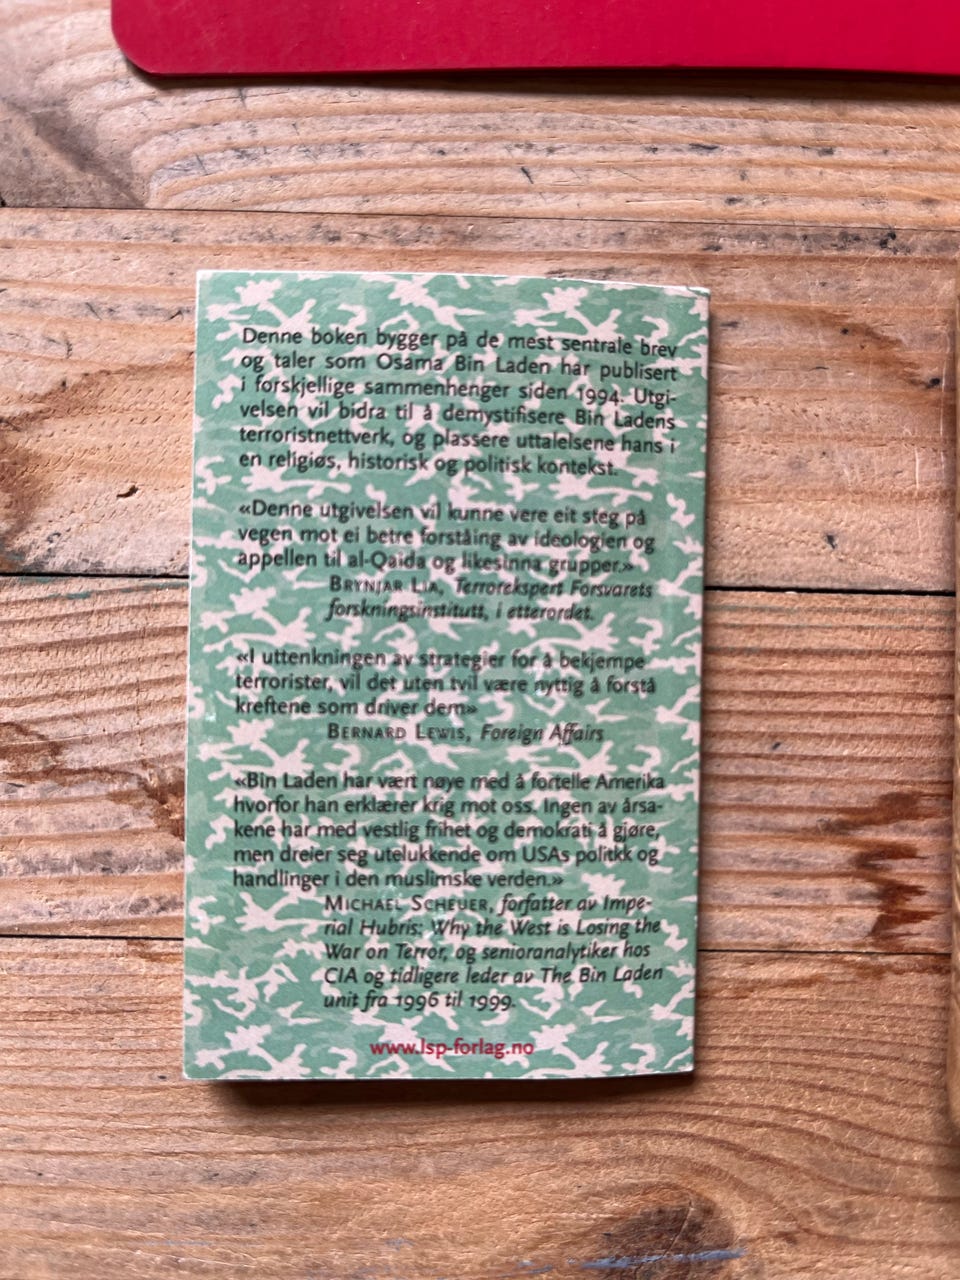 Denne boken bygger på de mest sentrale brev
og taler som Osama Bin Laden har publisert
i forskjellige sammenhenger siden 1994. Utgi-
velsen vil bidra til å demystifisere Bin Ladens
terroristnettverk, og plassere uttalelsene hans i
en religiøs, historisk og politisk kontekst.
«Denne utgivelsen vil kunne vere eit steg på
vegen mot ei betre forståing av ideologien og
appellen til al-Qaida og likesinna grupper.»
BRYNJAR LIA, Terrorekspert Forsvarets
forskningsinstitutt, i etterordet.
«I uttenkningen av strategier for å bekjempe
terrorister, vil det uten tvil være nyttig å forstå
kreftene som driver dem»
BERNARD LEWIS, Foreign Affairs
«Bin Laden har vært nøye med å fortelle Amerika
hvorfor han erklærer krig mot oss. Ingen av årsa-
kene har med vestlig frihet og demokrati å gjøre,
men dreier seg utelukkende om USAs politkk og
handlinger i den muslimske verden.»
MICHAEL SCHEUER, forfatter av Impe-
rial Hubris: Why the West is Losing the
War on Terror, og senioranalytiker hos
CIA og tidligere leder av The Bin Laden
unit fra 1996 til 1999.
www.lsp-forlag.no